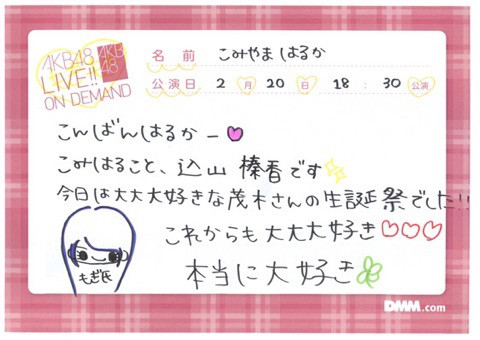 AKB48
LIVE!!
ON DEMAND
AKB
48
名前 こみやま はるか
公演日 2月20日 18:30公演
こんばんはるかー
こみはること、込山榛香です
今日は大大大好きな茂木さんの生誕祭でした!!
これからも大大大好き
本当に大好き
もぎ氏
DMM.com